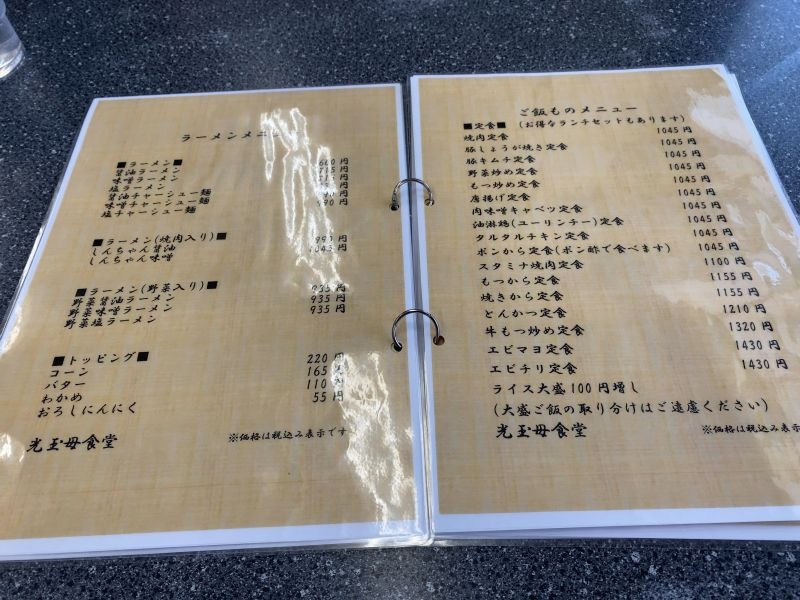 ラーメンメニ
■ラーメン■
醤油ラーメン 660円
味噌ラーメン 715円
塩ラーメン
醤油チャーシュー麺
味噌チャーシュー麺
塩チャーシュー麺 990円
■ラーメン(焼肉入り)■
しんちゃん醤油 990円
しんちゃん味噌 1045円
■ラーメン(野菜入り)■
野菜醤油ラーメン 935円
野菜味噌ラーメン 935円
野菜塩ラーメン 935円
■トッピング■
コーン 220円
バター 165
わかめ 110
おろしにんにく 55円
光玉母食堂 ※価格は税込み表示です
ご飯ものメニュー
■定食■ (お得なランチセットもあります)
焼肉定食 1045円
豚しょうが焼き定食 1045円
豚キムチ定食 1045円
野菜炒め定食 1045円
もつ炒め定食 1045円
唐揚げ定食 1045円
肉味噌キャベツ定食 1045円
油淋鶏(ユーリンチー)定食 1045円
タルタルチキン定食 1045円
ポンから定食(ポン酢で食べます) 1045円
スタミナ焼肉定食 1100円
もつから定食 1155円
焼きから定食 1155円
とんかつ定食 1210円
牛もつ炒め定食 1320円
エビマヨ定食 1430円
エビチリ定食 1430円
ライス大盛100円増し
(大盛ご飯の取り分けはご遠慮ください)
光玉母食堂 ※価格は税込み表示